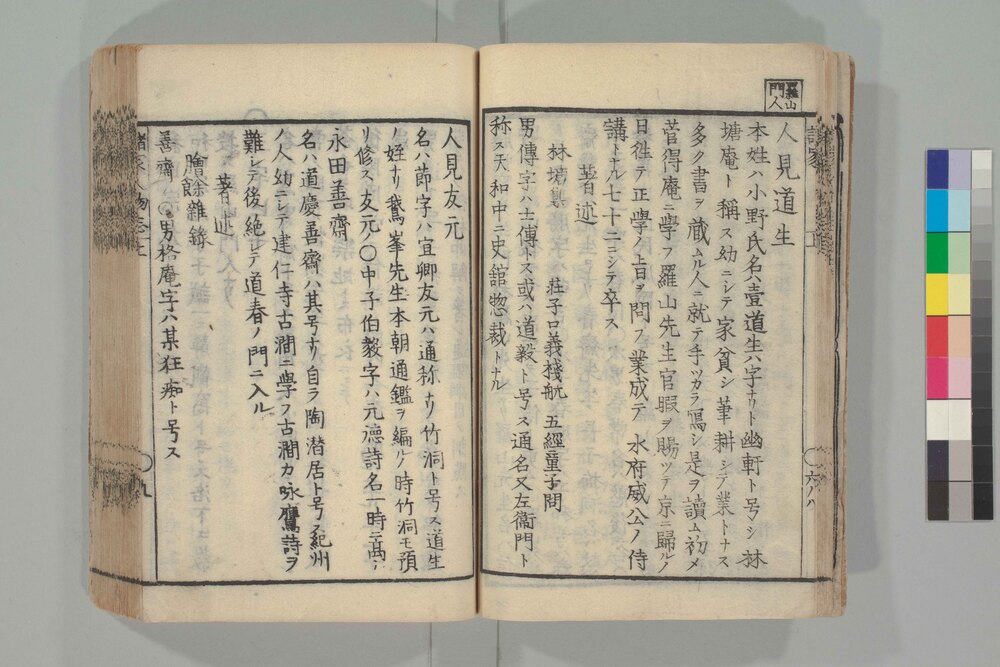 羅山
門人
人見道生
本姓ハ小野氏名ハ壹道生ハ字ナリト幽軒ト号シ林
塘庵ト稱ス幼ニシテ家貧シ筆耕シテ業トナス
多ク書ヲ蔵ムル人ニ就テ手ツカラ寫シ是ヲ讀ム初メ
菅得庵ニ學フ羅山先生官暇ヲ賜ツテ京ニ歸ルノ
日徃テ正學ノ上ヲ問フ業成テ水府威公ノ侍
講トナル七十二ニシテ卒ス
著述
林塘集 莊子口義棧航 五經童子問
男傳字ハ士傳トス或ハ道毅ト号ス通名又左衞門ト
称ス天和中ニ史舘惣裁トナル
人見友元
名ハ節字ハ宜卿友元ハ通称ナリ竹洞ト号ス道生
ノ姪ナリ鵞峯先生本朝通鑑ヲ編ルノ時竹洞モ預
リ修ス友元〇中子伯毅字ハ元德詩名一時ニ高シ
永田善齋
名ハ道慶善齋ハ其号ナリ自ラ陶潜居ト号ス紀洲
ノ人幼ニシテ建仁寺古澗ニ學フ古澗カ咏鷹詩ヲ
難シテ後絶シテ道春ノ門ニ入ル
著述
膾餘雜錄
善齋〇男格庵字ハ某狂痴ト号ス
九